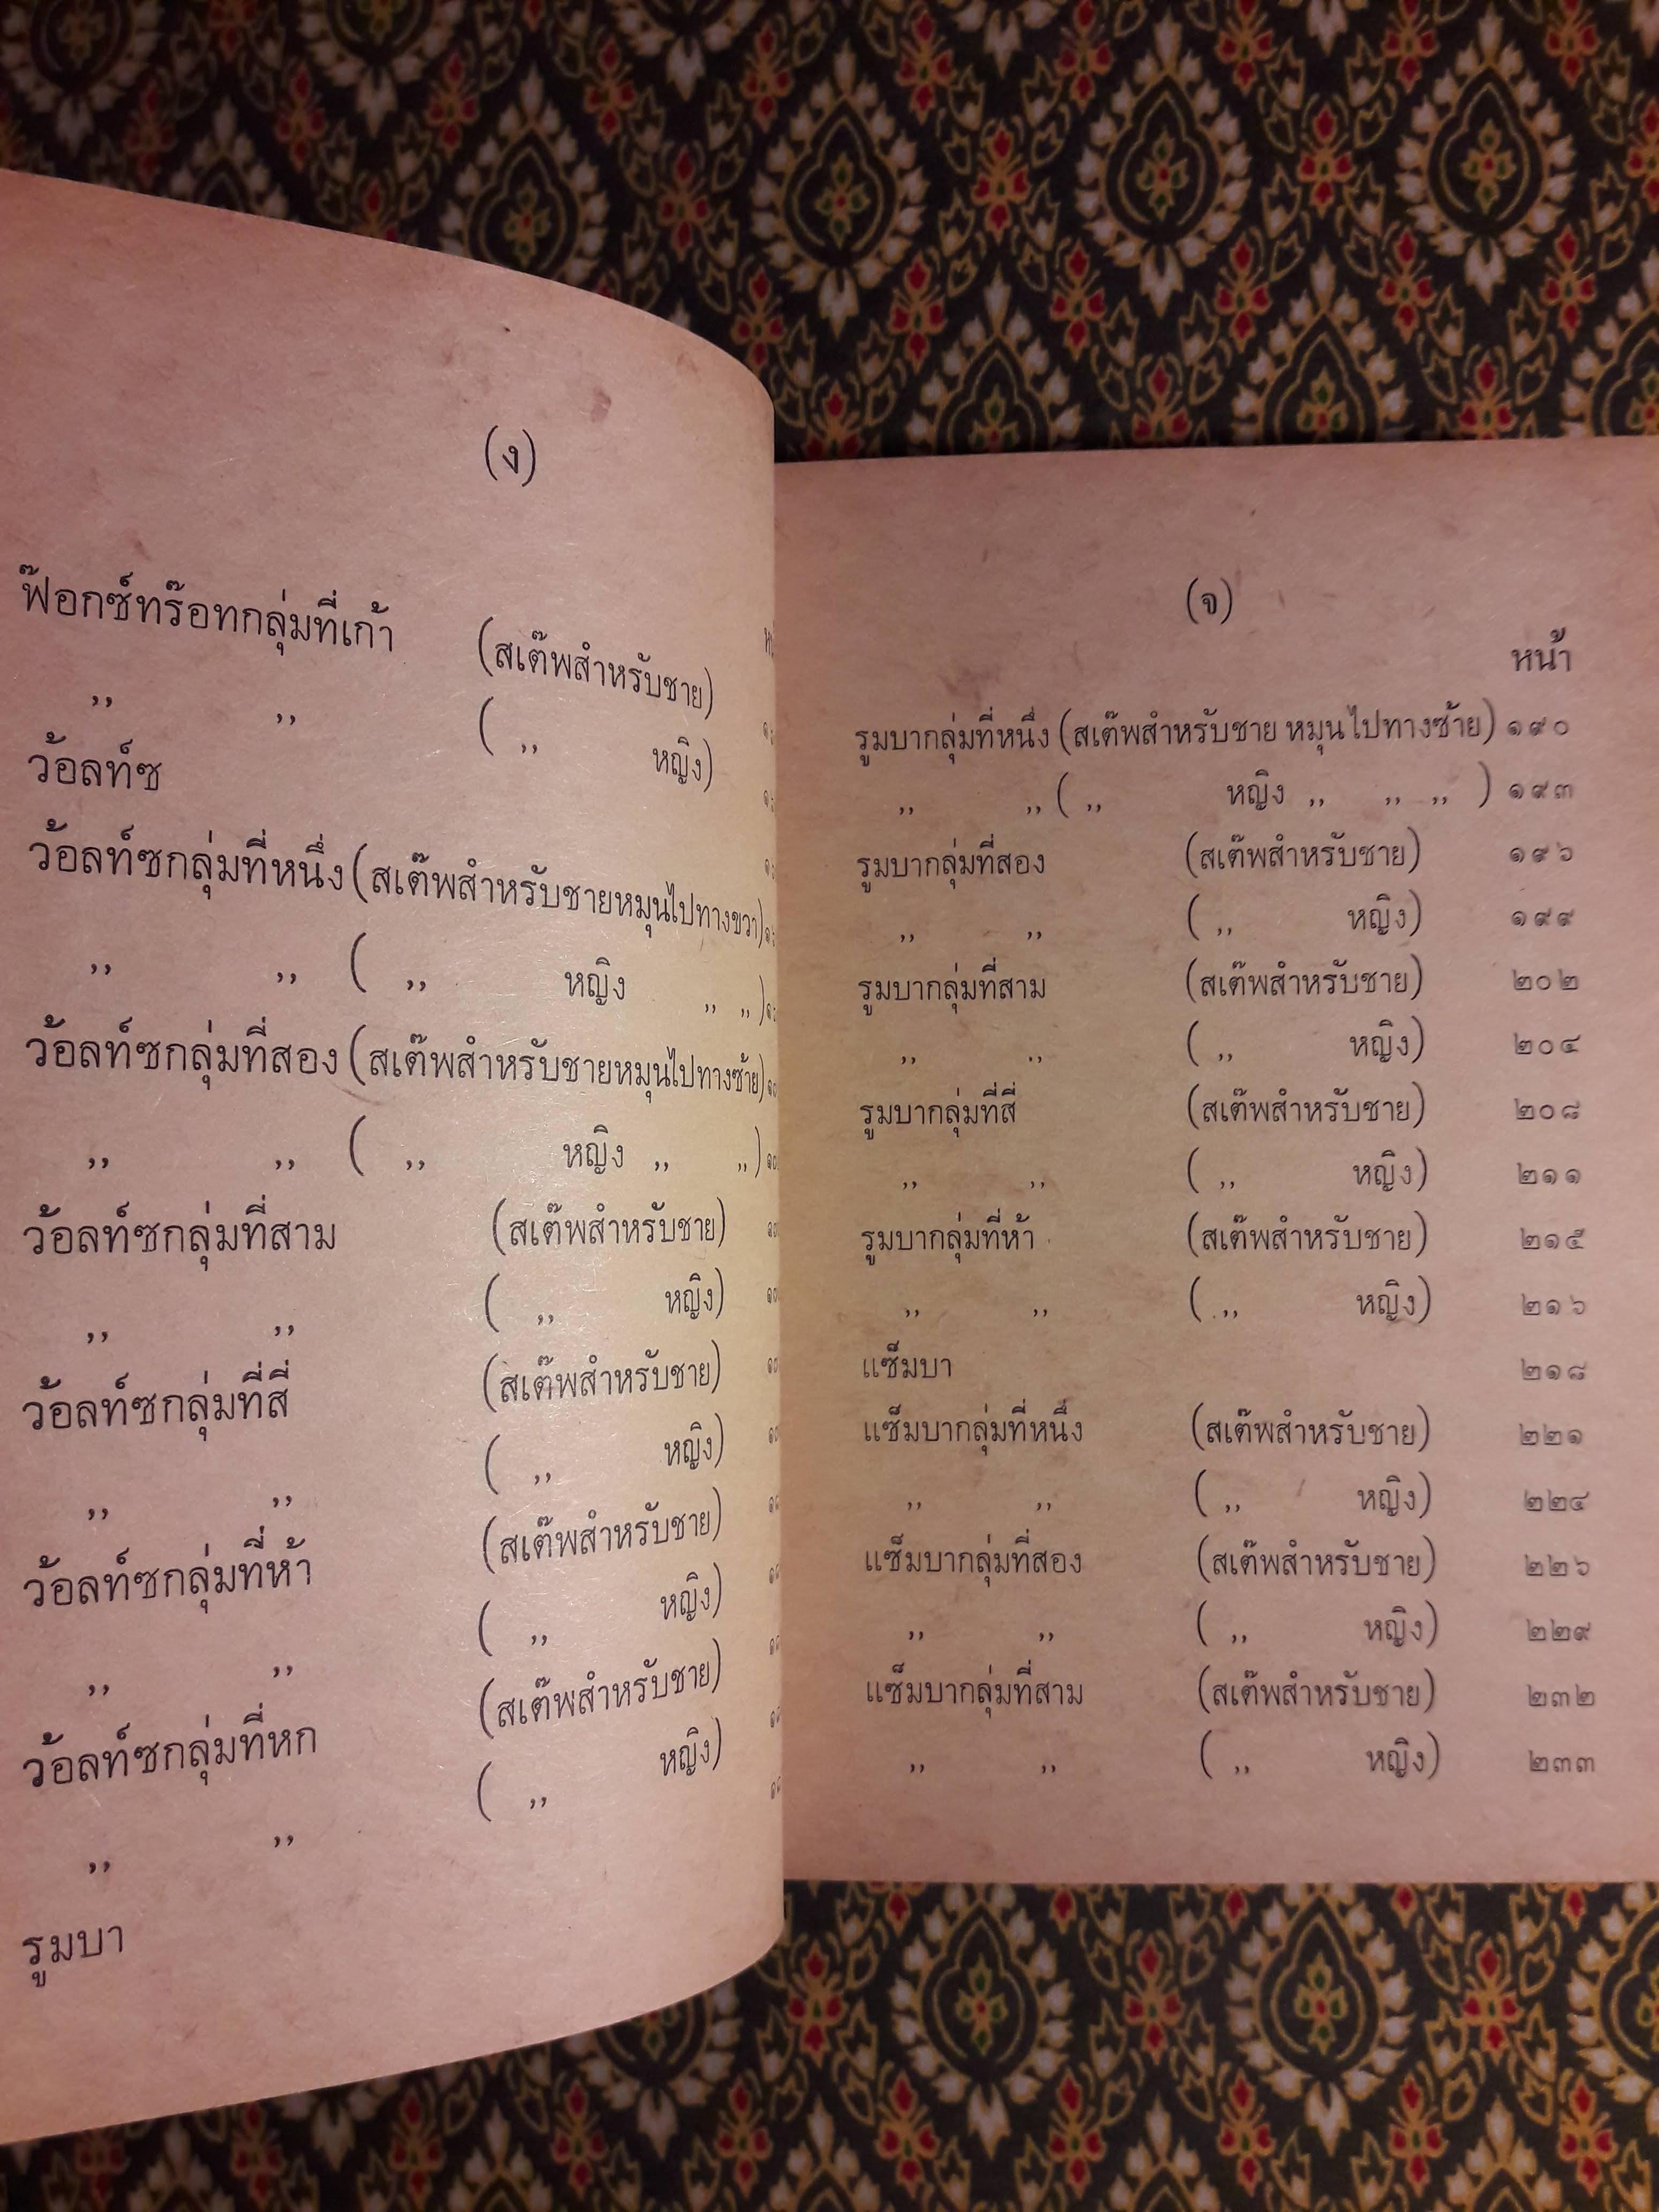 (ง)
ฟ๊อกซ์ทร๊อทกลุ่มที่เก้า (สเต๊พสำหรับชาย)
,, ,, ( ,, หญิง)
ว้อลท์ซ
ว้อลท์ซกลุ่มที่หนึ่ง (สเต๊พสำหรับชายหมุนไปทางขวา)
,, ,, ( ,, หญิง ,, ,, )
ว้อลท์ซกลุ่มที่สอง (สเต๊พสำหรับชายหมุนไปทางซ้าย)
,, ,, ( ,, หญิง ,, ,, )
ว้อลท์ซกลุ่มที่สาม (สเต๊พสำหรับชาย)
,, ,, ( ,, หญิง)
ว้อลท์ซกลุ่มที่สี่ (สเต๊พสำหรับชาย)
,, ,, ( ,, หญิง)
ว้อลท์ซกลุ่มที่ห้า (สเต๊พสำหรับชาย)
,, ,, ( ,, หญิง)
ว้อลท์ซกลุ่มที่หก (สเต๊พสำหรับชาย)
,, ,, ( ,, หญิง)
รูมบา
(จ)
หน้า
รูมบากลุ่มที่หนึ่ง (สเต๊พสำหรับชาย หมุนไปทางซ้าย) ๑๙๐
,, ,, ( ,, หญิง ,, ,, ,, ) ๑๙๓
รูมบากลุ่มที่สอง (สเต๊พสำหรับชาย) ๑๙๖
,, ,, ( ,, หญิง) ๑๙๙
รูมบากลุ่มที่สาม (สเต๊พสำหรับชาย) ๒๐๒
,, ,, ( ,, หญิง) ๒๐๔
รูมบากลุ่มที่สี่ (สเต๊พสำหรับชาย) ๒๐๘
,, ,, ( ,, หญิง) ๒๑๑
รูมบากลุ่มที่ห้า (สเต๊พสำหรับชาย) ๒๑๕
,, ,, ( ,, หญิง) ๒๑๖
แซ็มบา ๒๑๘
แซ็มบากลุ่มที่หนึ่ง (สเต๊พสำหรับชาย) ๒๒๑
,, ,, ( ,, หญิง) ๒๒๔
แซ็มบากลุ่มที่สอง (สเต๊พสำหรับชาย) ๒๒๖
,, ,, ( ,, หญิง) ๒๒๙
แซ็มบากลุ่มที่สาม (สเต๊พสำหรับชาย) ๒๓๒
,, ,, ( ,, หญิง) ๒๓๓